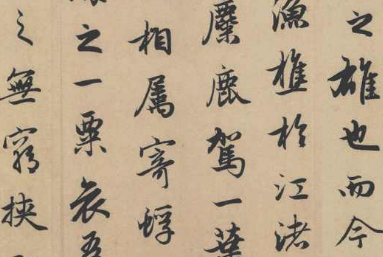 之雄也而今
漁樵於江渚
麋鹿駕一葉
相属寄蜉
之一粟哀吾
之無窮挟